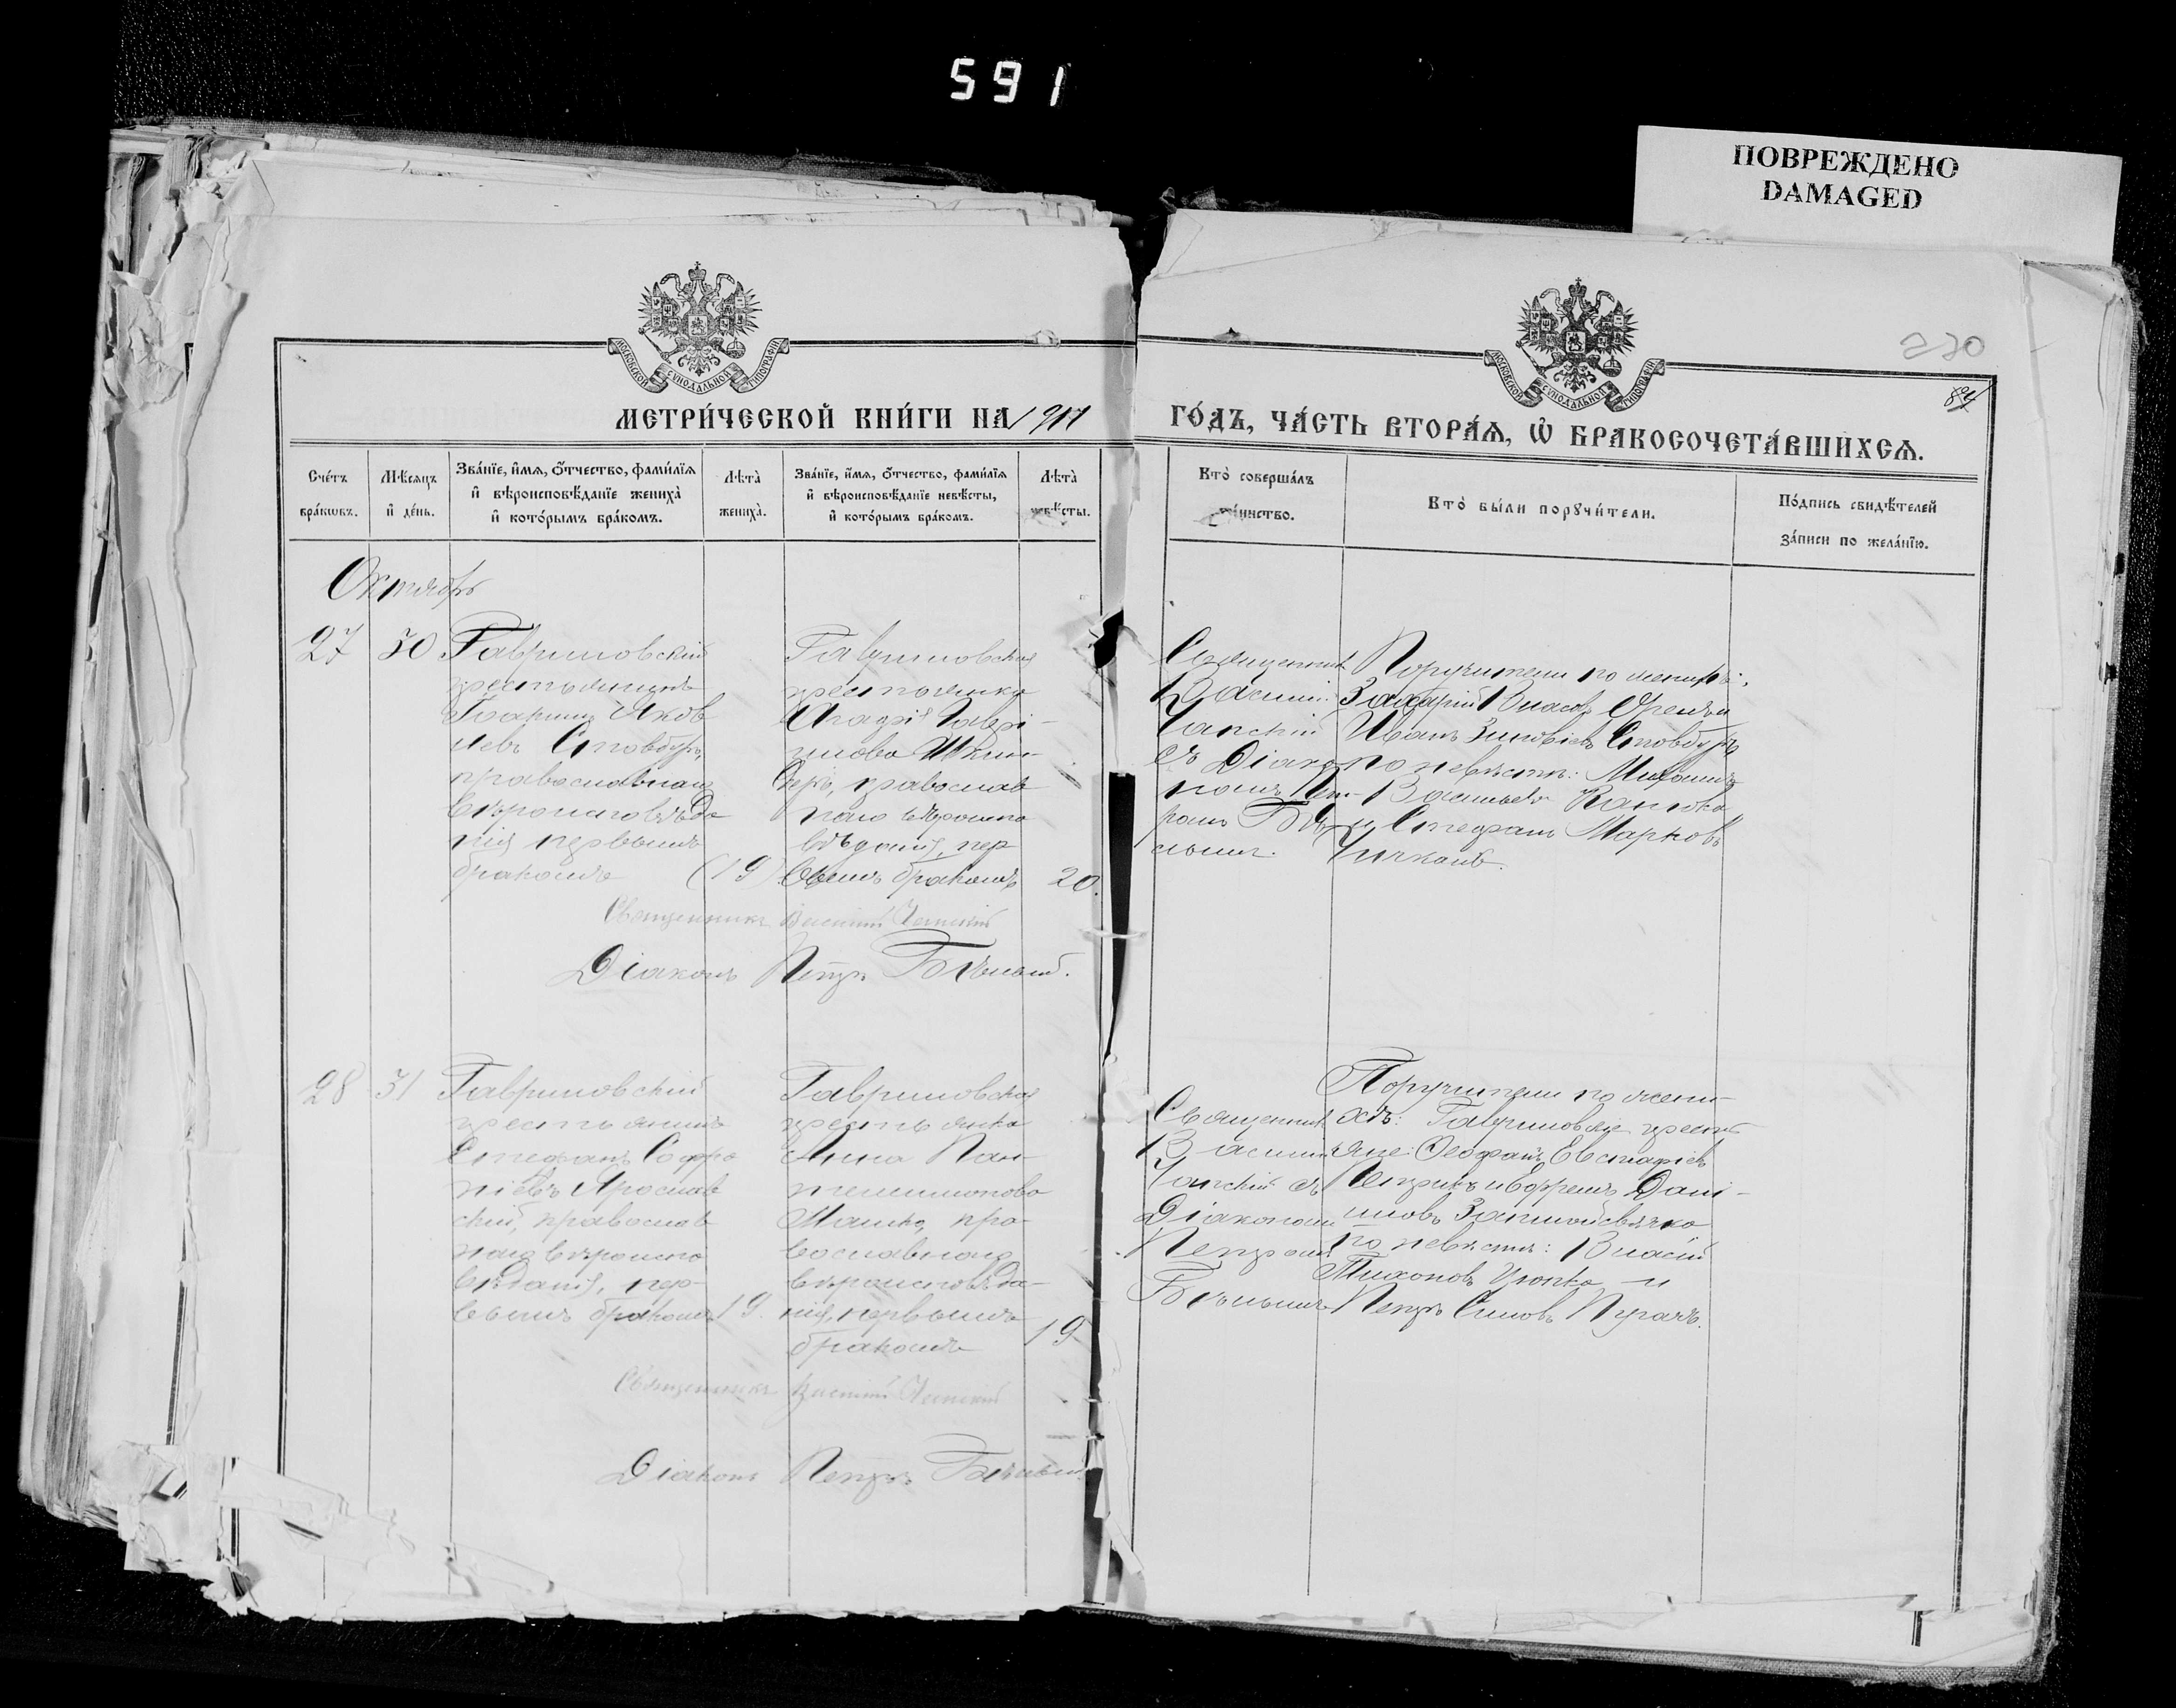 591
ПОВРЕЖДЕНО
DAMAGED
МОСКОВСКОЙ СѴНОДАЛЬНОЙ ТИПОГРАФІИ
МОСКОВСКОЙ СѴНОДАЛЬНОЙ ТИПОГРАФІИ
230
84
МЕТРИ́ЧЕСКОЙ КНИ́ГИ НА
ГО́ДЪ, ЧА́СТЬ ВТОРА́Ѧ, Ѽ БРАКОСОЧЕТА́ВШИХСѦ.
Сче́тъ бра́кѡвъ.
Мѣ́сяцъ и҆ де́нь.
Зва́нїе, и҆́мѧ, ѻ҆́тчество, фами́лїѧ
и҆ вѣроисповѣ́данїе жениха̀
и҆ кото́рымъ бра́комъ.
Лѣта̀ жениха̀.
Зва́нїе, и҆́мѧ, ѻ҆́тчество, фами́лїѧ
и҆ вѣроисповѣ́данїе невѣ́сты,
и҆ кото́рымъ бра́комъ.
Лѣта̀ невѣ́сты.
Кто̀ соверша́лъ
та́инство.
Кто̀ бы́ли порꙋчи́тели.
По́дпись свидѣ́телей
за́писи по жела́нїю.
Октябрь
27
30
Гавриловскій
крестьянинъ
Яков
левъ Стовбуръ,
православнаго
вѣроисповѣда
нія первымъ
бракомъ
(19)
Гавриловская
крестьянка
Гаврі-
илова
православ
наго вѣроиспо
вѣданія, пер
вымъ бракомъ
20.
Священникъ
Василій
Чапскій
съ Діако
номъ Пет-
ромъ Бѣ
лымъ.
Поручители по женихѣ:
Захарій Власовъ
Иванъ Зиновіевъ Стовбуръ
по невѣстѣ: Михаилъ
Васильевъ
и Стефанъ Марковъ
Чичканъ.
Священникъ Василій Чапскій
Діаконъ Петръ Бѣлый.
28
31
Гавриловскій
крестьянинъ
Стефанъ Софро
ніевъ Ярослав
скій, православ
наго вѣроиспо
вѣданія, пер-
вымъ бракомъ
19.
Гавриловская
крестьянка
Анна Пан-
телеимонова
Машко, пра-
вославнаго
вѣроисповѣда-
нія, первымъ
бракомъ
19
Священникъ
Василій
Чапскій съ
Діакономъ
Петромъ
Бѣлымъ
Поручители по жени-
хѣ: Гавриловскіе крестья
яне: Ѳеофанъ Евстафіевъ
Петрикъ и Ефремъ Дани-
иловъ
по невѣстѣ: Власій
Тихоновъ и
Петръ Силовъ Пугачъ.
Священникъ Василій Чапскій
Діаконъ Петръ Бѣлый